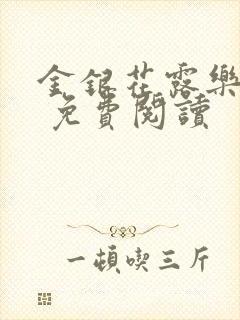 金銀花露樂
免費閱讀
一頓喫三斤